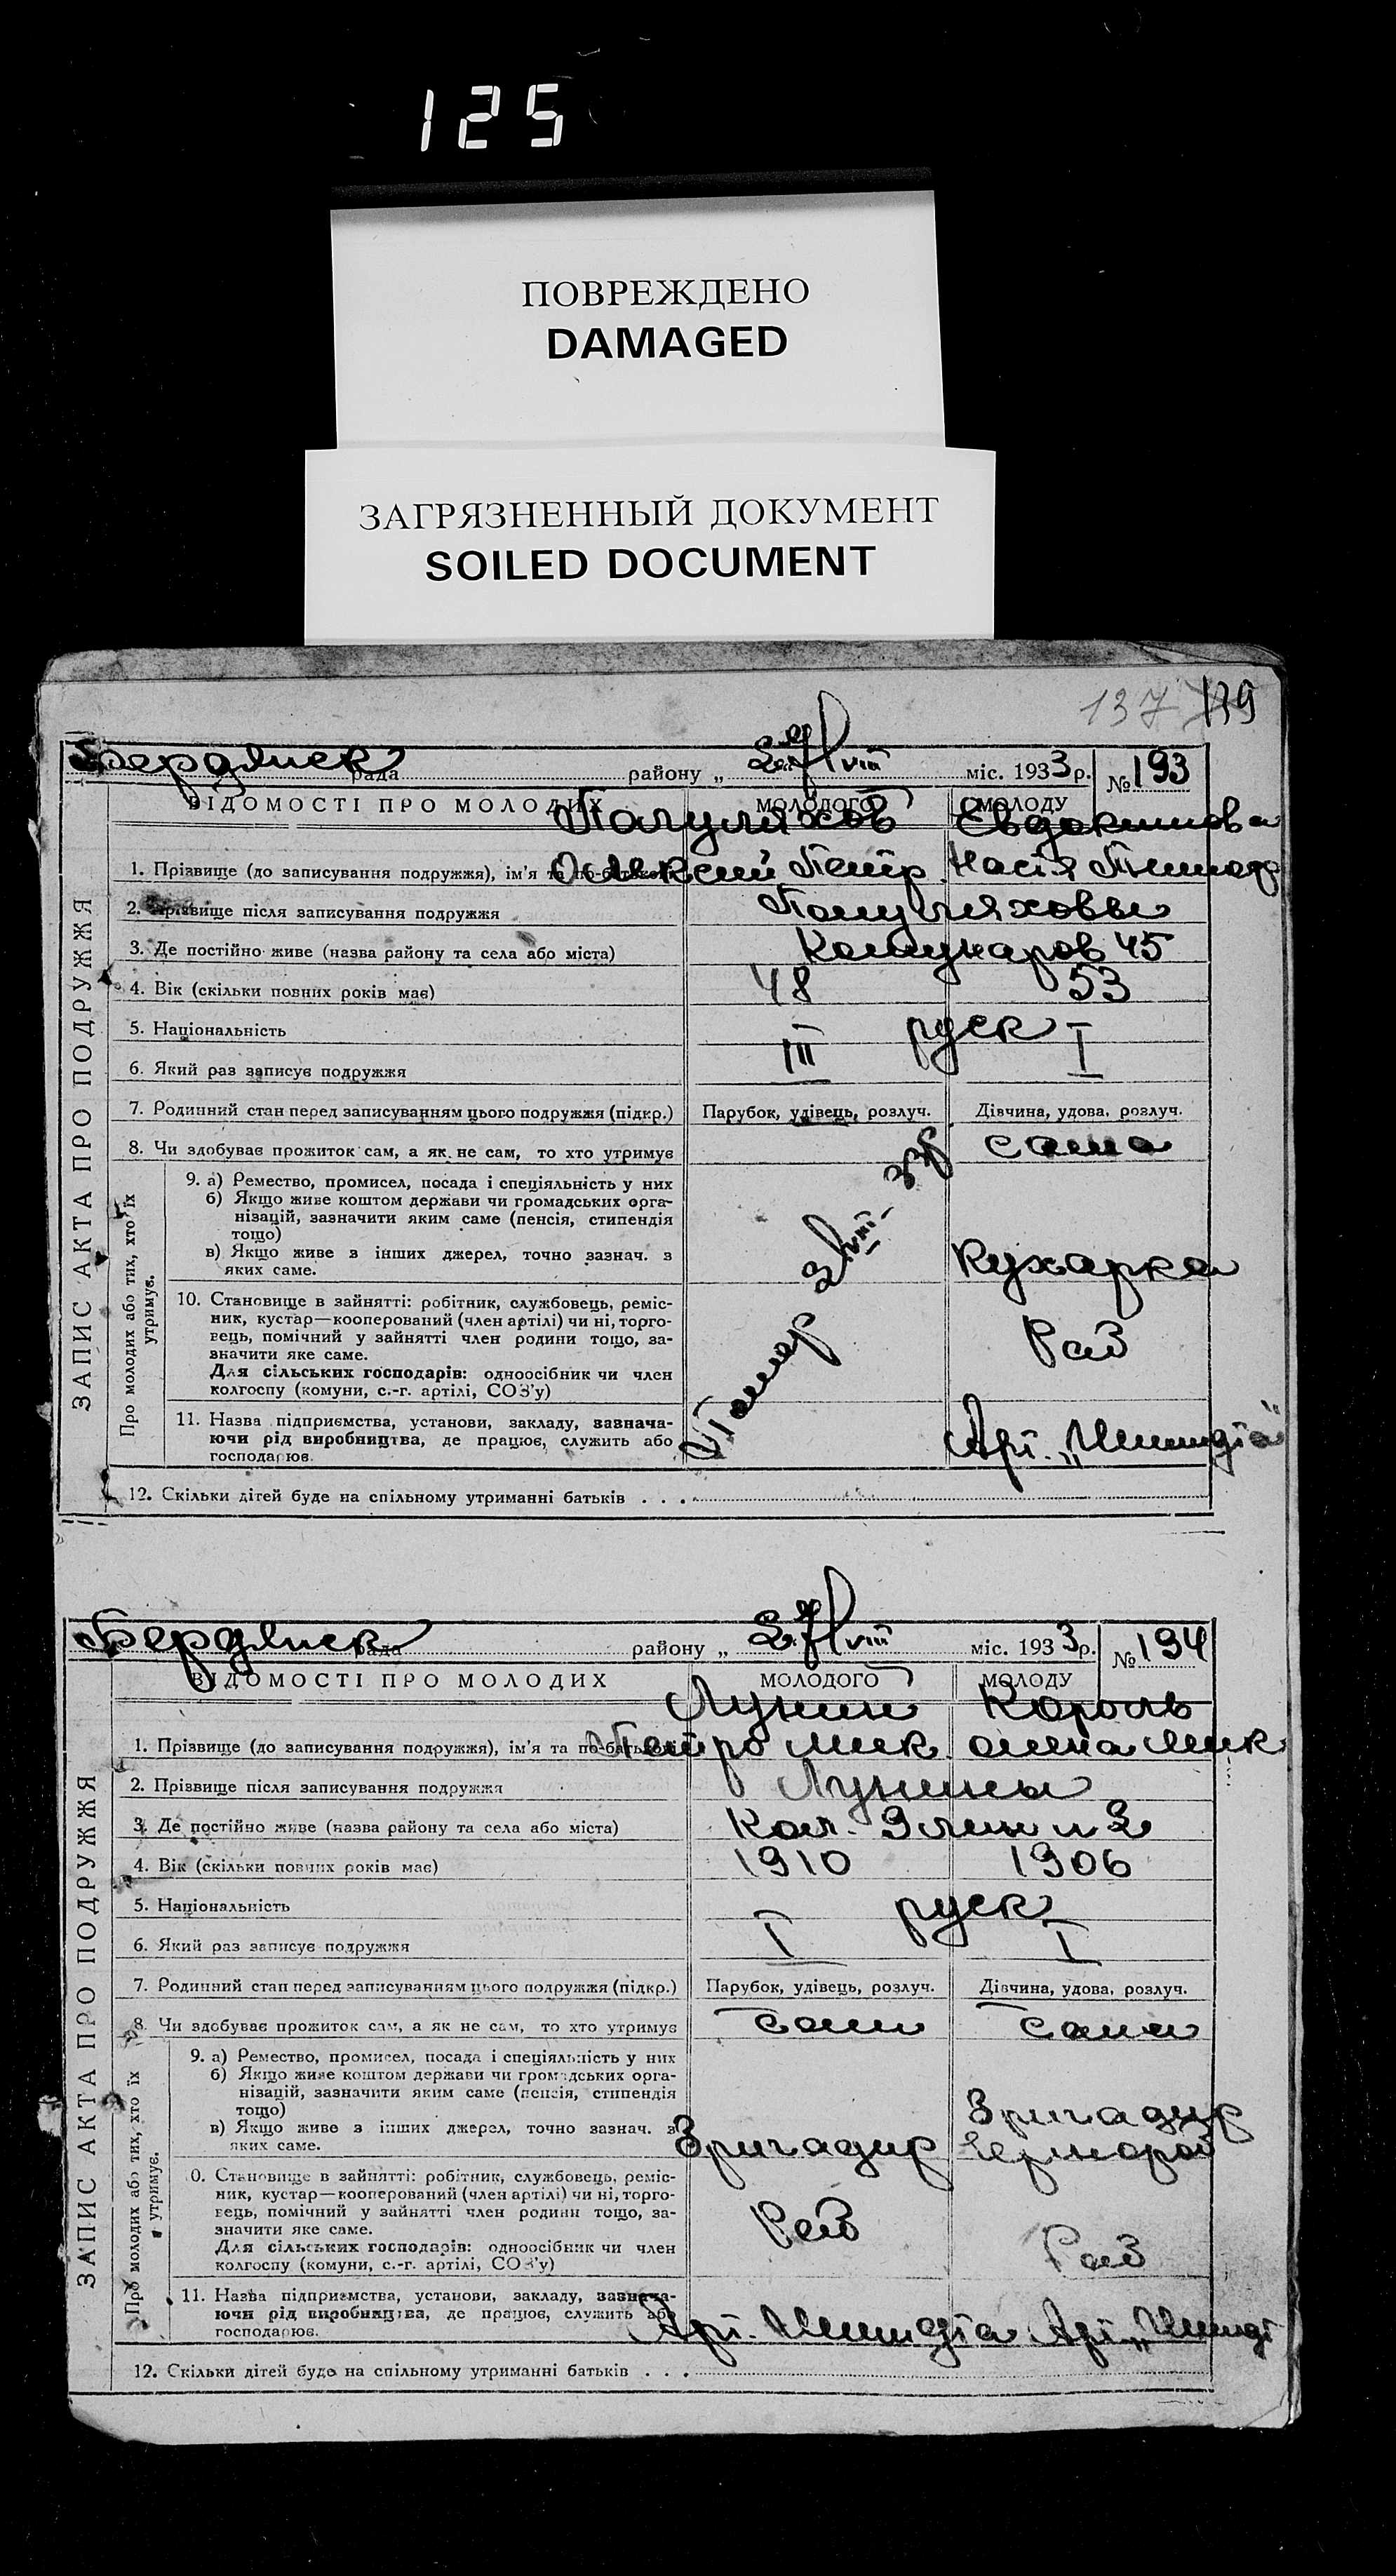 125
ПОВРЕЖДЕНО
DAMAGED
ЗАГРЯЗНЕННЫЙ ДОКУМЕНТ
SOILED DOCUMENT
137 139
Бердянск рада району „ VIII міс. 1933 р. № 193
ВІДОМОСТІ ПРО МОЛОДИХ МОЛОДОГО МОЛОДУ
Евдокимова
1. Прізвище (до записування подружжя), ім'я та по-батькові Олексий Петр. Насія
2. Прізвище після записування подружжя
3. Де постійно живе (назва району та села або міста) Комунаров 45
4. Вік (скільки повних років має) 48 53
5. Національність руск
6. Який раз записує подружжя III I
7. Родинний стан перед записуванням цього подружжя (підкр.) Парубок, удівець, розлуч. Дівчина, удова, розлуч.
8. Чи здобуває прожиток сам, а як не сам, то хто утримує сама
ЗАПИС АКТА ПРО ПОДРУЖЖЯ
Про молодих або тих, хто їх утримує.
9. а) Ремество, промисел, посада і спеціяльність у них
б) Якщо живе коштом держави чи громадських орга-
нізацій, зазначити яким саме (пенсія, стипендія
тощо)
в) Якщо живе з інших джерел, точно зазнач. з
яких саме.
Кухарка
10. Становище в зайнятті: робітник, службовець, реміс-
ник, кустар—кооперований (член артілі) чи ні, торго-
вець, помічний у зайнятті член родини тощо, за-
значити яке саме.
Для сільських господарів: одноосібник чи член
колгоспу (комуни, с.-г. артілі, СОЗ'у)
Раб
Помер
11. Назва підприємства, установи, закладу, зазнача-
ючи рід виробництва, де працює, служить або
господарює.
Арт.
12. Скільки дітей буде на спільному утриманні батьків . . .
Бердянск рада району „ VIII міс. 1933 р. № 194
ВІДОМОСТІ ПРО МОЛОДИХ МОЛОДОГО МОЛОДУ
Лунин Король
1. Прізвище (до записування подружжя), ім'я та по-батькові Петро Мик. Мик
2. Прізвище після записування подружжя Лунины
3. Де постійно живе (назва району та села або міста)
4. Вік (скільки повних років має) 1910 1906
5. Національність руск
6. Який раз записує подружжя I I
7. Родинний стан перед записуванням цього подружжя (підкр.) Парубок, удівець, розлуч. Дівчина, удова, розлуч.
8. Чи здобуває прожиток сам, а як не сам, то хто утримує сам сама
ЗАПИС АКТА ПРО ПОДРУЖЖЯ
Про молодих або тих, хто їх утримує.
9. а) Ремество, промисел, посада і спеціяльність у них
б) Якщо живе коштом держави чи громадських орга-
нізацій, зазначити яким саме (пенсія, стипендія
тощо)
в) Якщо живе з інших джерел, точно зазнач. з
яких саме.
Бригадир Бригадир
0. Становище в зайнятті: робітник, службовець, реміс-
ник, кустар—кооперований (член артілі) чи ні, торго-
вець, помічний у зайнятті член родини тощо, за-
значити яке саме.
Для сільських господарів: одноосібник чи член
колгоспу (комуни, с.-г. артілі, СОЗ'у)
Раб Раб
11. Назва підприємства, установи, закладу, зазнача-
ючи рід виробництва, де працює, служить або
господарює.
Арт. Арт.
12. Скільки дітей буде на спільному утриманні батьків . . .